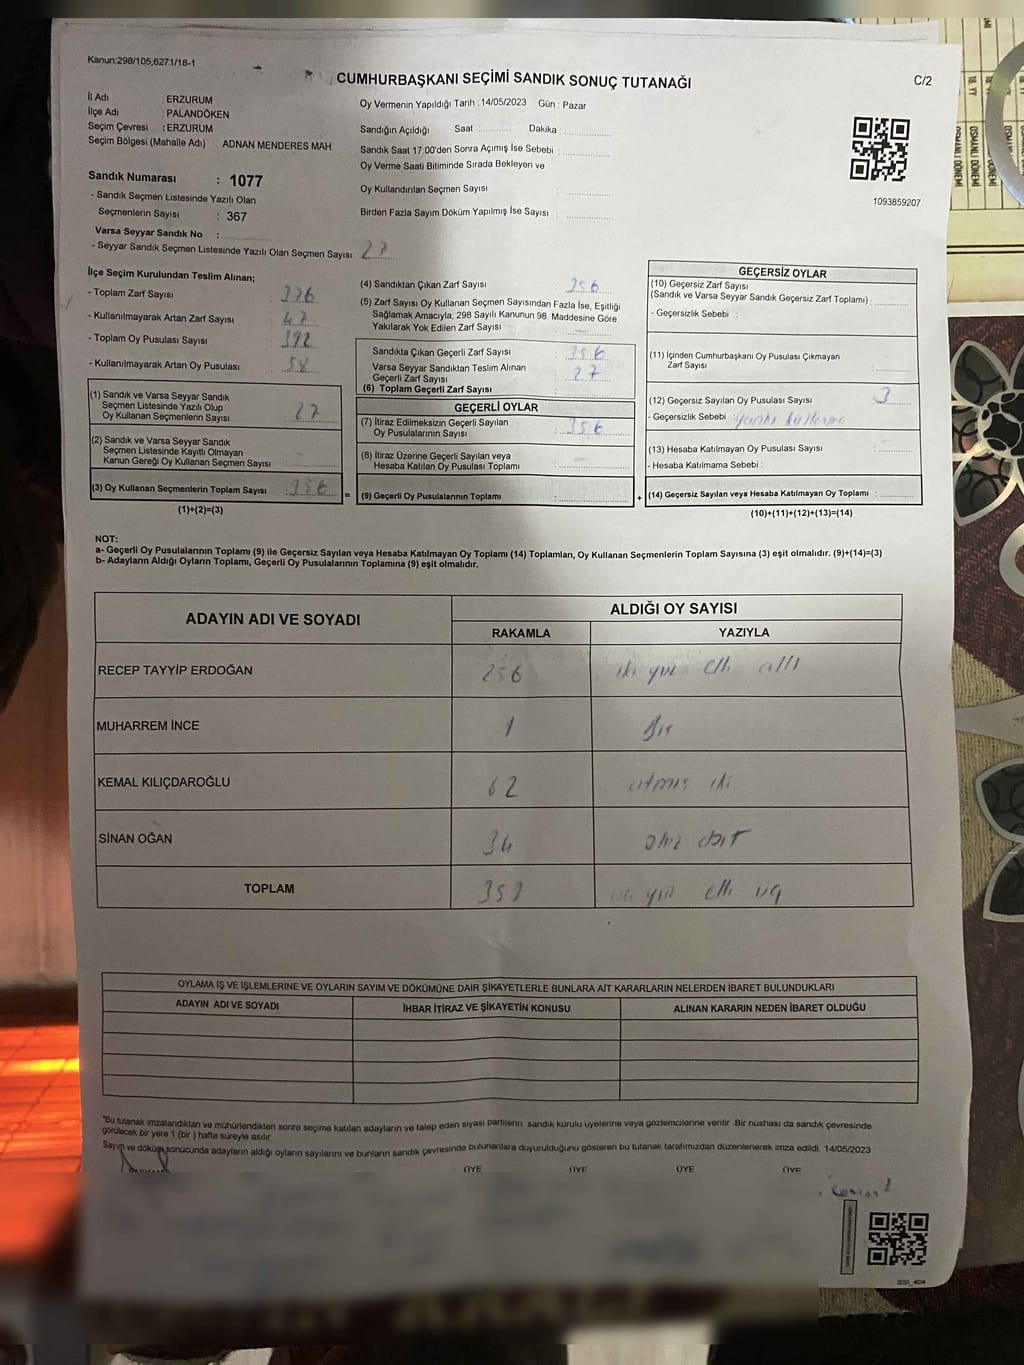 Kanun;298/105,627.1/18-1
CUMHURBAŞKANI SEÇİMİ SANDIK SONUÇ TUTANAĞI
C/2
İl Adı : ERZURUM
İlçe Adı : PALANDÖKEN
Seçim Çevresi : ERZURUM
Seçim Bölgesi (Mahalle Adı) : ADNAN MENDERES MAH
Sandık Numarası : 1077
- Sandık Seçmen Listesinde Yazılı Olan
Seçmenlerin Sayısı : 367
Varsa Seyyar Sandık No :
- Seyyar Sandık Seçmen Listesinde Yazılı Olan Seçmen Sayısı: 27
Oy Vermenin Yapıldığı Tarih : 14/05/2023 Gün : Pazar
Sandığın Açıldığı Saat : Dakika :
Sandık Saat 17:00'den Sonra Açımış İse Sebebi :
Oy Verme Saati Bitiminde Sırada Bekleyen ve
Oy Kullandırılan Seçmen Sayısı :
Birden Fazla Sayım Döküm Yapılmış İse Sayısı :
1093859207
İlçe Seçim Kurulundan Teslim Alınan;
- Toplam Zarf Sayısı : 376
- Kullanılmayarak Artan Zarf Sayısı : 47
- Toplam Oy Pusulası Sayısı : 392
- Kullanılmayarak Artan Oy Pusulası : 58
(1) Sandık ve Varsa Seyyar Sandık
Seçmen Listesinde Yazılı Olup
Oy Kullanan Seçmenlerin Sayısı : 27
(2) Sandık ve Varsa Seyyar Sandık
Seçmen Listesinde Kayıtlı Olmayan
Kanun Gereği Oy Kullanan Seçmen Sayısı :
(3) Oy Kullanan Seçmenlerin Toplam Sayısı : 356
(1)+(2)=(3)
(4) Sandıktan Çıkan Zarf Sayısı : 356
(5) Zarf Sayısı Oy Kullanan Seçmen Sayısından Fazla İse, Eşitliği
Sağlamak Amacıyla, 298 Sayılı Kanunun 98. Maddesine Göre
Yakılarak Yok Edilen Zarf Sayısı :
Sandıkta Çıkan Geçerli Zarf Sayısı : 356
Varsa Seyyar Sandıktan Teslim Alınan
Geçerli Zarf Sayısı : 27
(6) Toplam Geçerli Zarf Sayısı :
GEÇERLİ OYLAR
(7) İtiraz Edilmeksizin Geçerli Sayılan
Oy Pusulalarının Sayısı : 356
(8) İtiraz Üzerine Geçerli Sayılan veya
Hesaba Katılan Oy Pusulası Toplamı :
= (9) Geçerli Oy Pusulalarının Toplamı :
GEÇERSİZ OYLAR
(10) Geçersiz Zarf Sayısı
(Sandık ve Varsa Seyyar Sandık Geçersiz Zarf Toplamı) :
- Geçersizlik Sebebi :
(11) İçinden Cumhurbaşkanı Oy Pusulası Çıkmayan
Zarf Sayısı :
(12) Geçersiz Sayılan Oy Pusulası Sayısı : 3
- Geçersizlik Sebebi :
(13) Hesaba Katılmayan Oy Pusulası Sayısı :
- Hesaba Katılmama Sebebi :
+ (14) Geçersiz Sayılan veya Hesaba Katılmayan Oy Toplamı :
(10)+(11)+(12)+(13)=(14)
NOT:
a- Geçerli Oy Pusulalarının Toplamı (9) ile Geçersiz Sayılan veya Hesaba Katılmayan Oy Toplamı (14) Toplamları, Oy Kullanan Seçmenlerin Toplam Sayısına (3) eşit olmalıdır. (9)+(14)=(3)
b- Adayların Aldığı Oyların Toplamı, Geçerli Oy Pusulalarının Toplamına (9) eşit olmalıdır.
ADAYIN ADI VE SOYADI ALDIĞI OY SAYISI
RAKAMLA YAZIYLA
RECEP TAYYİP ERDOĞAN 256 iki yüz elli altı
MUHARREM İNCE 1 Bir
KEMAL KILIÇDAROĞLU 62 atmış iki
SİNAN OĞAN 34 otuz dört
TOPLAM 353 üç yüz elli üç
OYLAMA İŞ VE İŞLEMLERİNE VE OYLARIN SAYIM VE DÖKÜMÜNE DAİR ŞİKAYETLERLE BUNLARA AİT KARARLARIN NELERDEN İBARET BULUNDUKLARI
ADAYIN ADI VE SOYADI İHBAR İTİRAZ VE ŞİKAYETİN KONUSU ALINAN KARARIN NEDEN İBARET OLDUĞU
"Bu tutanak imzalandıktan ve mühürlendikten sonra seçime katılan adayların ve talep eden siyasi partilerin sandık kurulu üyelerine veya gözlemcilerine verilir .Bir nüshası da sandık çevresinde
görülecek bir yere 1 (bir ) hafta süreyle asılır.
Sayım ve döküm sonucunda adayların aldığı oyların sayılarını ve bunların sandık çevresinde bulunanlara duyurulduğunu gösteren bu tutanak tarafımızdan düzenlenerek imza edildi. 14/05/2023
ÜYE ÜYE ÜYE ÜYE
SSI_404